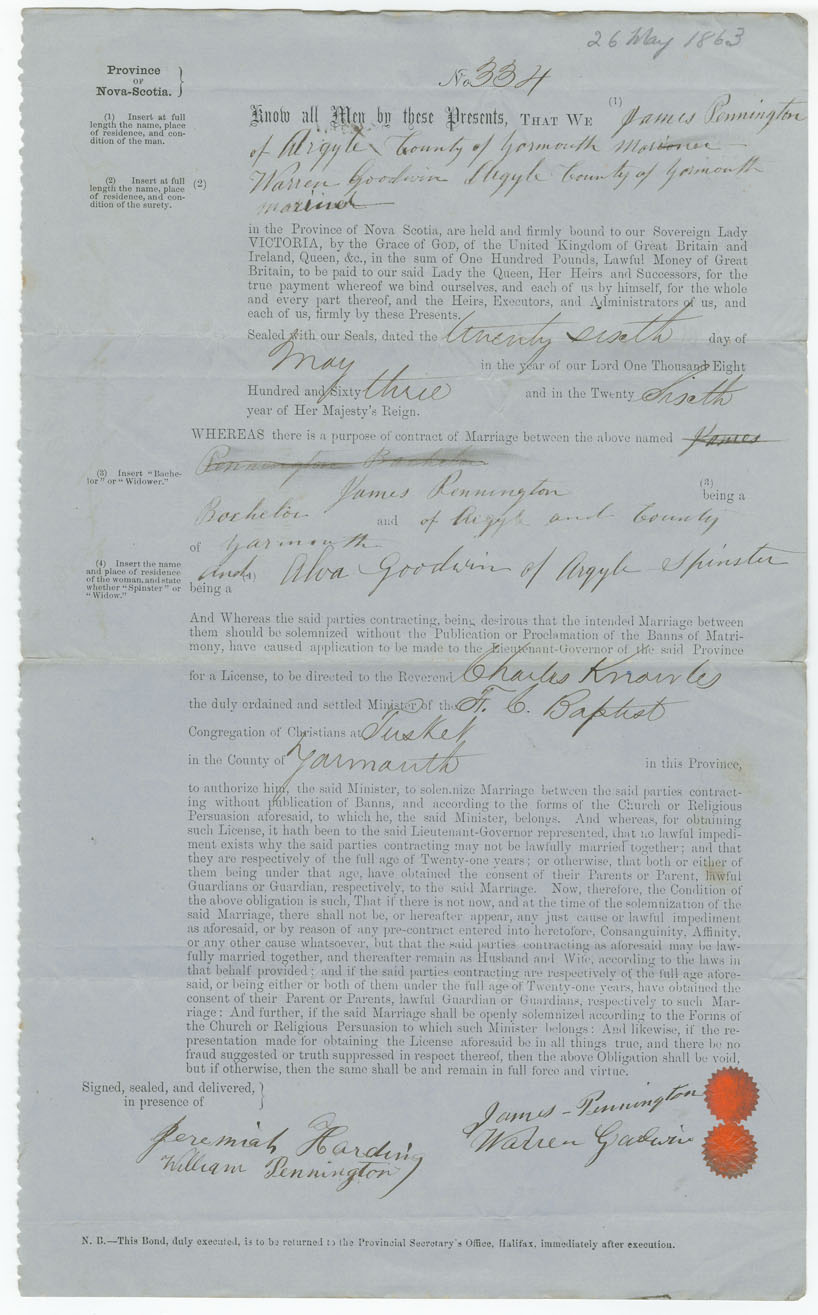 26 May 1863
Province
OF
Nova-Scotia.
No 334
(1) Insert at full
length the name, place
of residence, and con-
dition of the man.
Know all Men by these Presents, THAT WE (1) James Pennington
of Argyle County of Yarmouth Marriner
(2) Insert at full
length the name, place
of residence, and con-
dition of the surety.
(2) Warren Goodwin Argyle County of Yarmouth
in the Province of Nova Scotia, are held and firmly bound to our Sovereign Lady
VICTORIA, by the Grace of GOD, of the United Kingdom of Great Britain and
Ireland, Queen, &c., in the sum of One Hundred Pounds, Lawful Money of Great
Britain, to be paid to our said Lady the Queen, Her Heirs and Successors, for the
true payment whereof we bind ourselves, and each of us by himself, for the whole
and every part thereof, and the Heirs, Executors, and Administrators of us, and
each of us, firmly by these Presents.
Sealed with our Seals, dated the twenty sixth day of
May in the year of our Lord One Thousand Eight
Hundred and Sixty three and in the Twenty Sixth
year of Her Majesty's Reign.
WHEREAS there is a purpose of contract of Marriage between the above named James
Pennington Bachelor
(3) Insert "Bache-
lor" or "Widower."
James Pennington (3) being a
Bachelor and of Argyle and County
of Yarmouth
(4) Insert the name
and place of residence
of the woman, and state
whether "Spinster" or
"Widow."
and Alva Goodwin of Argyle Spinster
being a
And Whereas the said parties contracting, being desirous that the intended Marriage between
them should be solemnized without the Publication or Proclamation of the Banns of Matri-
mony, have caused application to be made to the Lieutenant-Governor of the said Province
for a License, to be directed to the Reverend Charles Knowles
the duly ordained and settled Minister of the F. C. Baptist
Congregation of Christians at Tusket
in the County of Yarmouth in this Province,
to authorize him, the said Minister, to solemnize Marriage between the said parties contract-
ing without publication of Banns, and according to the forms of the Church or Religious
Persuasion aforesaid, to which he, the said Minister, belongs. And whereas, for obtaining
such License, it hath been to the said Lieutenant-Governor represented, that no lawful impedi-
ment exists why the said parties contracting may not be lawfully married together; and that
they are respectively of the full age of Twenty-one years; or otherwise, that both or either of
them being under that age, have obtained the consent of their Parents or Parent, lawful
Guardians or Guardian, respectively, to the said Marriage. Now, therefore, the Condition of
the above obligation is such, That if there is not now, and at the time of the solemnization of the
said Marriage, there shall not be, or hereafter appear, any just cause or lawful impediment
as aforesaid, or by reason of any pre-contract entered into heretofore, Consanguinity, Affinity,
or any other cause whatsoever, but that the said parties contracting as aforesaid may be law-
fully married together, and thereafter remain as Husband and Wife, according to the laws in
that behalf provided; and if the said parties contracting are respectively of the full age afore-
said, or being either or both of them under the full age of Twenty-one years, have obtained the
consent of their Parent or Parents, lawful Guardian or Guardians, respectively to such Mar-
riage: And further, if the said Marriage shall be openly solemnized according to the Forms of
the Church or Religious Persuasion to which such Minister belongs: And likewise, if the re-
presentation made for obtaining the License aforesaid be in all things true, and there be no
fraud suggested or truth suppressed in respect thereof, then the above Obligation shall be void,
but if otherwise, then the same shall be and remain in full force and virtue.
Signed, sealed, and delivered,
in presence of
James - Pennington
Warren Godwin
Jeremiah Harding
William Pennington
N. B.—This Bond, duly executed, is to be returned to the Provincial Secretary's Office, Halifax, immediately after execution.